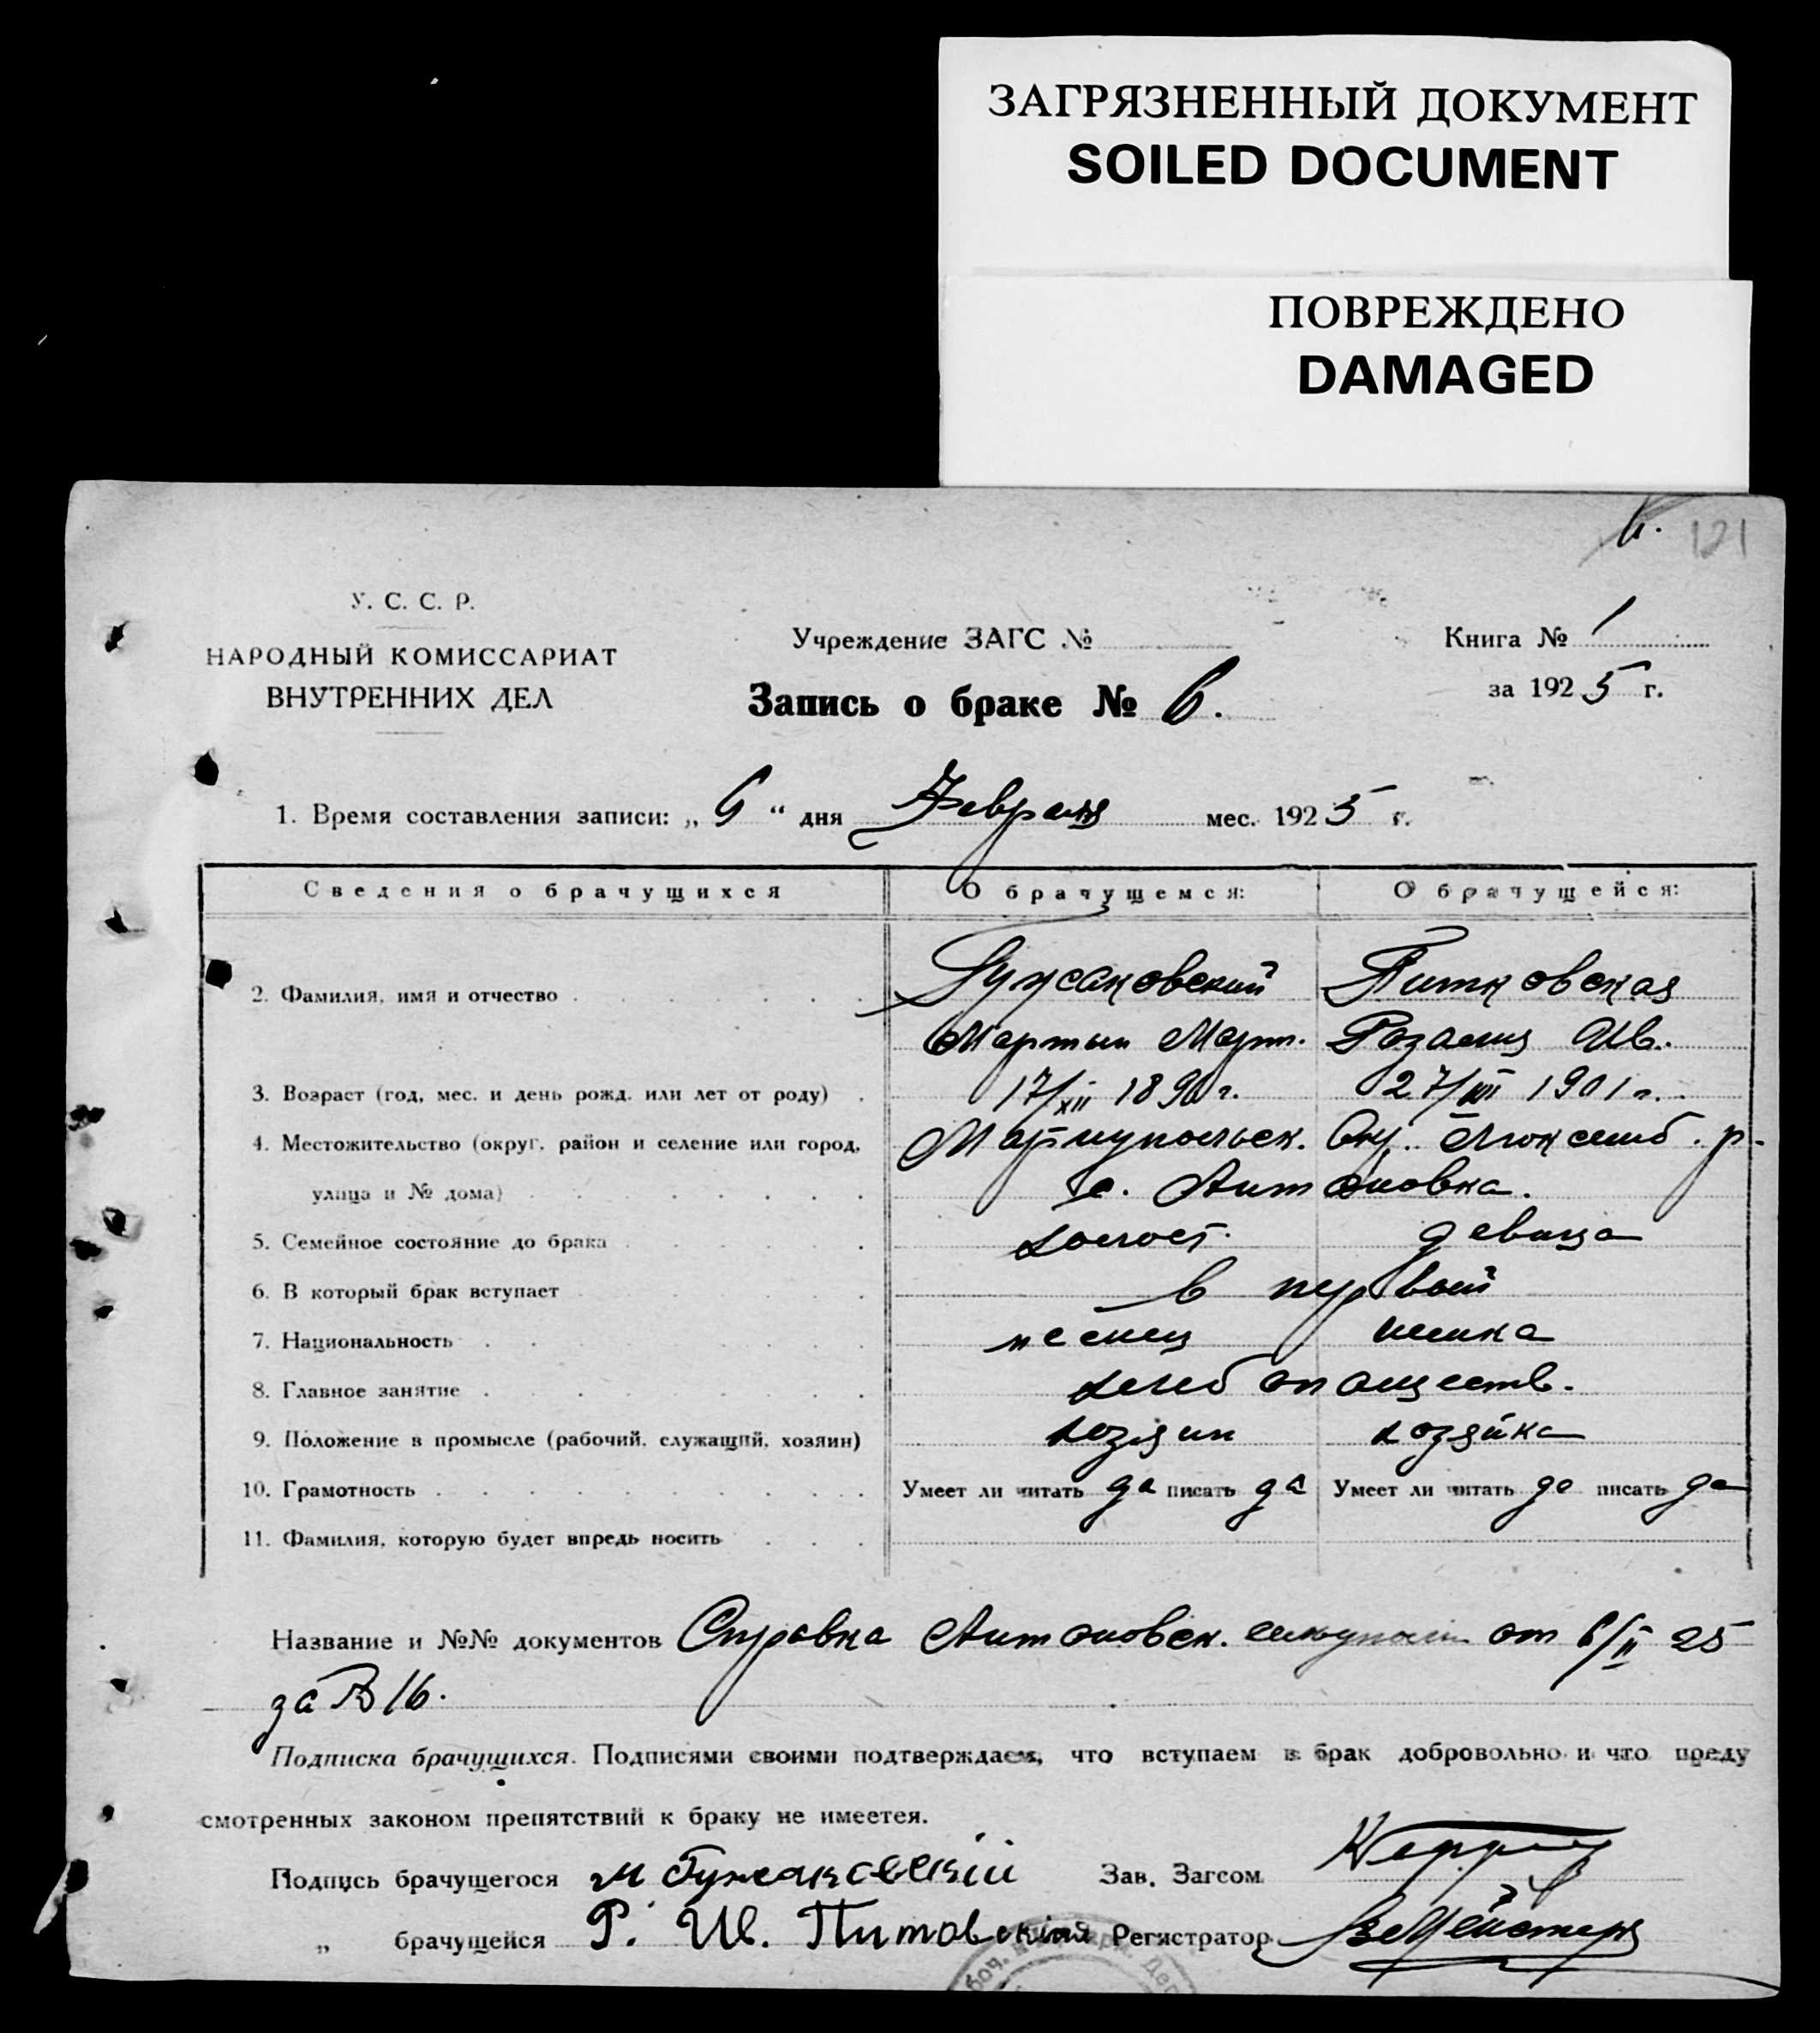 ЗАГРЯЗНЕННЫЙ ДОКУМЕНТ
SOILED DOCUMENT
ПОВРЕЖДЕНО
DAMAGED
6. 121
У. С. С. Р.
НАРОДНЫЙ КОМИССАРИАТ
ВНУТРЕННИХ ДЕЛ
Учреждение ЗАГС №
Запись о браке № 6.
Книга № 1
за 1925 г.
1. Время составления записи: „ 6 “ дня Февраля мес. 1925 г.
Сведения о брачущихся О брачущемся: О брачущейся:
2. Фамилия, имя и отчество Гужаковский Питковская
Мартын Март. Розалия Ив.
3. Возраст (год, мес. и день рожд. или лет от роду) 17/XII 1890 г. 27/VII 1901 г.
4. Местожительство (округ, район и селение или город, Мариупольск. Окр. Люксемб. р.
улица и № дома) с. Антоновка.
5. Семейное состояние до брака холост. девица
6. В который брак вступает в первый
7. Национальность немец немка
8. Главное занятие хлебопашеств.
9. Положение в промысле (рабочий, служащий, хозяин) хозяин хозяйка
10. Грамотность Умеет ли читать да писать да Умеет ли читать да писать да
11. Фамилия, которую будет впредь носить
Название и №№ документов Справка Антоновск. от 6/II 25
за № 16.
Подписка брачущихся. Подписями своими подтверждаем, что вступаем в брак добровольно и что преду
смотренных законом препятствий к браку не имеется.
Подпись брачущегося М Гужаковскій Зав. Загсом
„ брачущейся Р. Ив. Питовския Регистратор